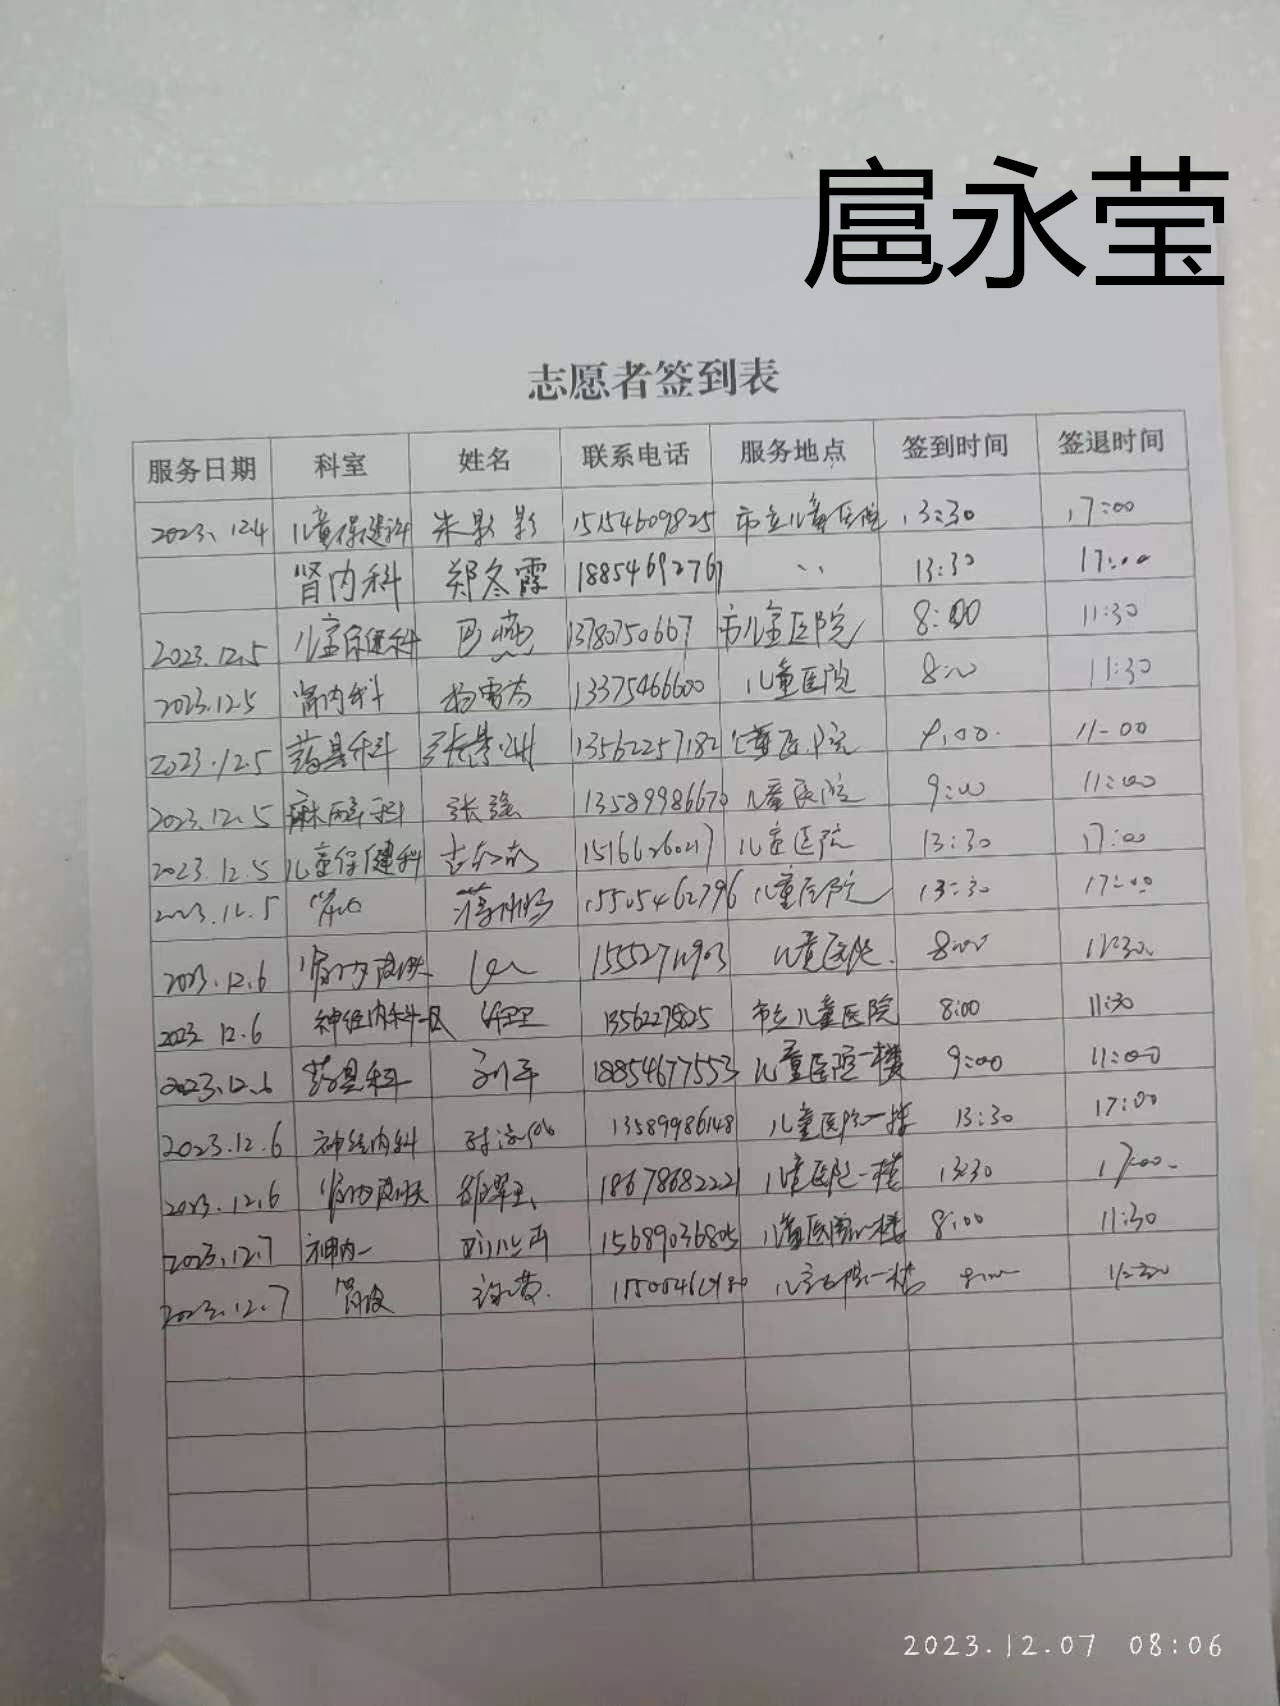 扈永莹
志愿者签到表
服务日期 科室 姓名 联系电话 服务地点 签到时间 签退时间
2023.12.4 儿童保健科 朱影影 15154609825 市立儿童医院 13:30 17:00
肾内科 郑冬霞 18854692767 、、 13:30 17:00
2023.12.5 儿童保健科 巴燕 13780750667 市儿童医院 8:00 11:30
2023.12.5 肾内科 13375466600 儿童医院 8:00 11:30
2023.12.5 药具科 13562257182 儿童医院 9:00 11-00
2023.12.5 麻醉科 张强 13589986670 儿童医院 9:00 11:00
2023.12.5 儿童保健科 儿童医院 13:30 17:00
2023.12.5 15505462796 儿童医院 13:30 17:00
2023.12.6 儿童医院 8:00 11:30
2023.12.6 神经内科一区 13562279825 市立儿童医院 8:00 11:30
2023.12.6 药具科 18854677553 儿童医院一楼 9:00 11:00
2023.12.6 神经内科 13589986148 儿童医院一楼 13:30 17:00
2023.12.6 18678682221 儿童医院一楼 13:30 17:00
2023.12.7 神内一 15689036805 儿童医院一楼 8:00 11:30
2023.12.7
2023.12.07 08:06